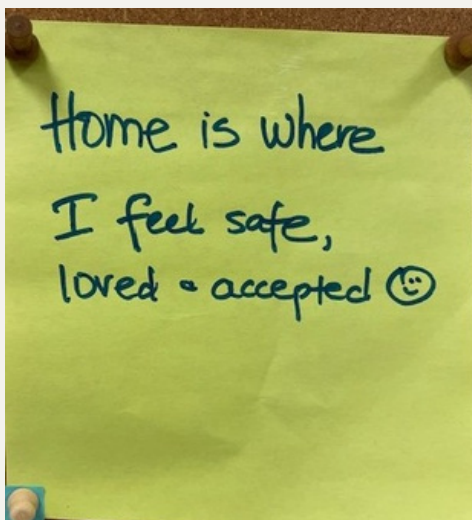 Home is where
I feel safe,
loved & accepted ☺